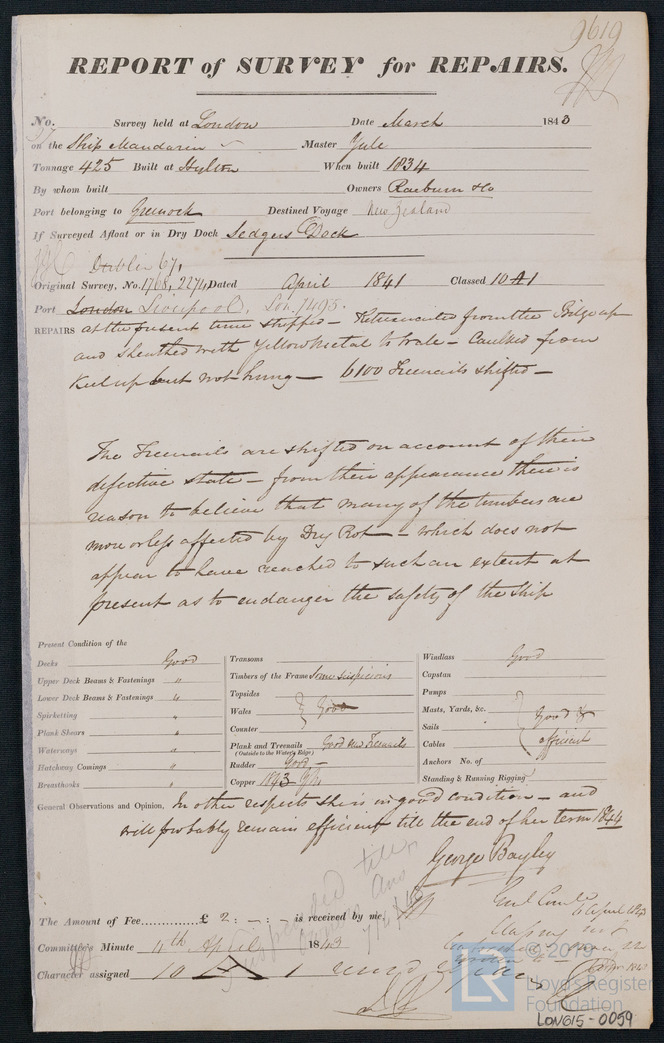 9619
REPORT of SURVEY for REPAIRS.
No. Survey held at London Date March 1843
on the Ship Mandarin Master Yule
Tonnage 425 Built at Hylton When built 1834
By whom built Owners Raeburn & Co
Port belonging to Greenock Destined Voyage New Zealand
If Surveyed Afloat or in Dry Dock Ledgers Dock
Dublin 67,
Original Survey, No. 1768, 2274, Dated April 1841 Classed 10 A 1
Port London Liverpool, Lon. 7495.
REPAIRS at the present time stripped - Retreenailed from the Bilge up
and sheathed with Yellow Metal to Wale - Caulked from
Keel up but not hung - 6100 Treenails shifted -
The Treenails are shifted on account of their
defective state - from their appearance there is
reason to believe that many of the timbers are
more or less affected by Dry Rot - which does not
appear to have reached to such an extent at
present as to endanger the safety of the ship
Present Condition of the
Decks Good
Upper Deck Beams & Fastenings "
Lower Deck Beams & Fastenings "
Spirketting "
Plank Shears "
Waterways "
Hatchway Comings "
Breasthooks "
Transoms
Timbers of the Frame Some suspicious
Topsides
Wales Good
Counter
Plank and Treenails Good new Treenails
(Outside to the Water's Edge)
Rudder Good -
Copper 1843 Y M
Windlass Good
Capstan
Pumps
Masts, Yards, &c. Good &
Sails efficient
Cables
Anchors No. of
Standing & Running Rigging
General Observations and Opinion, In other respects she is in good condition - and
will probably remain efficient till the end of her term 1844
George Bayley
suspended till
The Amount of Fee............£ 2 : - : - is received by me,
6 April 1843
Committee's Minute 11th April 1843
Character assigned 10 A 1
© 2019
LR Lloyd's Register
Foundation
LON615-0059